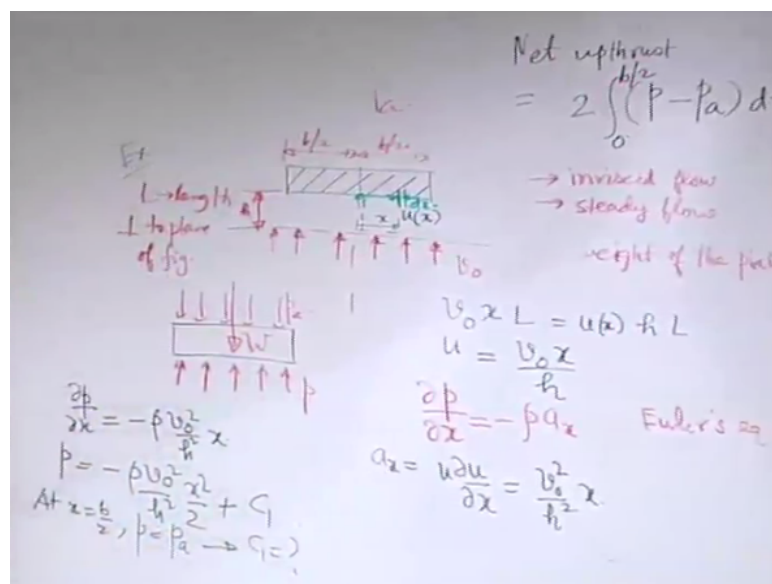 Net upthrust
= 2 ∫₀^{b/2} (p − pₐ) d
b/2 b/2
L → length
⊥ to plane
of fig.
h
x u(x)
v₀
→ inviscid flow
→ steady flow
weight of the
W
p
v₀ x L = u(x) h L
u = v₀ x / h
∂p/∂x = −ρ aₓ Euler's eq
aₓ = u ∂u/∂x = v₀²/h² x
∂p/∂x = −ρ v₀²/h² x
p = −ρ v₀²/h² x²/2 + C₁
At x = b/2, p = pₐ → C₁ = ?